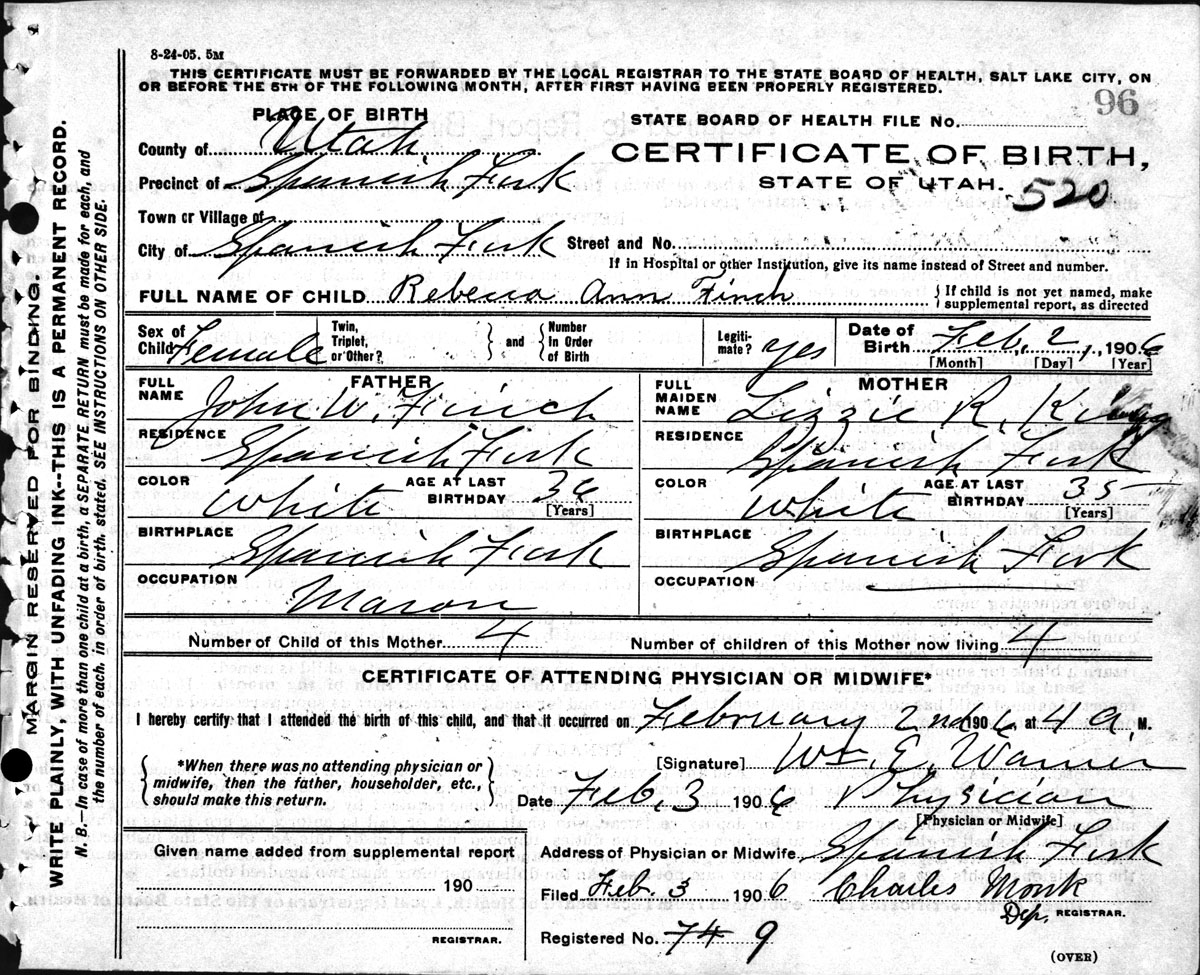 8-24-05. 5M
THIS CERTIFICATE MUST BE FORWARDED BY THE LOCAL REGISTRAR TO THE STATE BOARD OF HEALTH, SALT LAKE CITY, ON
OR BEFORE THE 5TH OF THE FOLLOWING MONTH, AFTER FIRST HAVING BEEN PROPERLY REGISTERED.
96
PLACE OF BIRTH
STATE BOARD OF HEALTH FILE No.
County of Utah
CERTIFICATE OF BIRTH,
Precinct of Spanish Fork
STATE OF UTAH. 520
Town or Village of
City of Spanish Fork Street and No.
If in Hospital or other Institution, give its name instead of Street and number.
FULL NAME OF CHILD Rebecca Ann Finch { If child is not yet named, make
supplemental report, as directed
Sex of Child Female Twin, Triplet, or Other? } and { Number In Order of Birth Legitimate? yes Date of Birth Feb, 2, 1906
[Month] [Day] [Year]
FATHER
FULL NAME John W. Finch
RESIDENCE Spanish Fork
COLOR White AGE AT LAST BIRTHDAY 36 [Years]
BIRTHPLACE Spanish Fork
OCCUPATION Mason
MOTHER
FULL MAIDEN NAME Lizzie R. King
RESIDENCE Spanish Fork
COLOR White AGE AT LAST BIRTHDAY 35 [Years]
BIRTHPLACE Spanish Fork
OCCUPATION
Number of Child of this Mother 4 Number of children of this Mother now living 4
CERTIFICATE OF ATTENDING PHYSICIAN OR MIDWIFE*
I hereby certify that I attended the birth of this child, and that it occurred on February 2nd 1906 at 4 a, M.
{ *When there was no attending physician or
midwife, then the father, householder, etc.,
should make this return. }
[Signature] Wm. E. Warner
Date Feb, 3 1906 Physician
[Physician or Midwife]
Given name added from supplemental report
190
REGISTRAR.
Address of Physician or Midwife Spanish Fork
Filed Feb. 3 1906 Charles Monk
Dep. REGISTRAR.
Registered No. 74 9
(OVER)
MARGIN RESERVED FOR BINDING.
WRITE PLAINLY, WITH UNFADING INK--THIS IS A PERMANENT RECORD.
N. B.—In case of more than one child at a birth, a SEPARATE RETURN must be made for each, and
the number of each, in order of birth, stated. SEE INSTRUCTIONS ON OTHER SIDE.